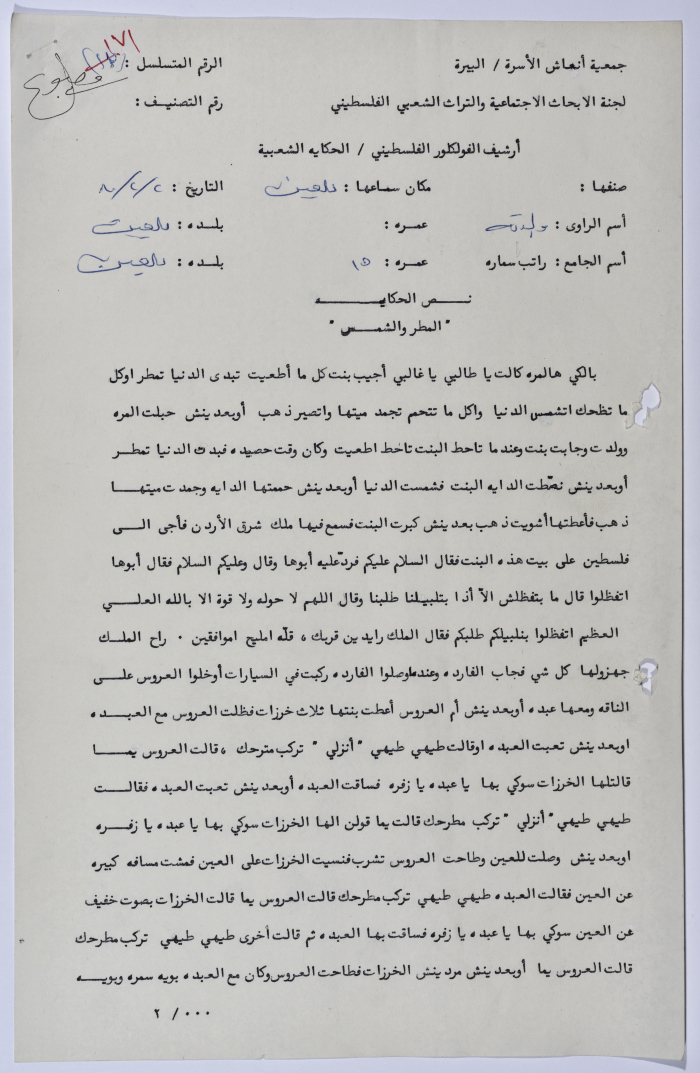 جمعية أنعاش الأسرة / البيرة
الرقم المتسلسل : ١٧١
لجنة الابحاث الاجتماعية والتراث الشعبي الفلسطيني
رقم التصنيف :
مطبوع
أرشيف الفولكلور الفلسطيني / الحكايه الشعبية
صنفها : مكان سماعها : بلعين التاريخ : ٢/٢/٨٠
أسم الراوى : والدته عمره : بلده : بلعين
أسم الجامع : راتب سماره عمره : ١٥ بلده : بلعين
نـــص الحكايـــــــــه
" المطر والشمـــس "
بالكي هالمره كالت يا طالبي يا غالبي أجيب بنت كل ما أطعيت تبدى الدنيا تمطر اوكل
ما تظحك اتشمس الدنيا واكل ما تتحم تجمد ميتها واتصير ذهب أوبعدينش حبلت المره
وولدت وجابت بنت وعند ما تاحط البنت تاخط اطعيت وكان وقت حصيده فبدت الدنيا تمطـر
أوبعدينش نصّطت الدايه البنت فشمست الدنيا أوبعدينش حممتها الدايه وجمدت ميتهـــا
ذهب فأعطتها أشويت ذهب بعدينش كبرت البنت فسمع فيها ملك شرق الأردن فأجى الـــى
فلسطين على بيت هذه البنت فقال السلام عليكم فردّ عليه أبوها وقال وعليكم السلام فقال أبوها
اتفظلوا قال ما بتفظلش الاّ أذا بتلبيلنا طلبنا وقال اللهم لا حوله ولا قوة الا بالله العلـــي
العظيم اتفظلوا بنلبيلكم طلبكم فقال الملك رايدين قربك ، قلّه امليح اموافقين . راح الملـك
جهزولها كل شي فجاب الفارده وعندما وصلوا الفارده ركبت في السيارات أوخلوا العروس علــى
الناقه ومعها عبده أوبعدينش أم العروس أعطت بنتها ثلاث خرزات فظلت العروس مع العبـده
اوبعدينش تعبت العبده اوقالت طيهي طيهي " أنزلي " تركب مترحك ، قالت العروس يمـــا
قالتلها الخرزات سوكي بها يا عبده يا زفره فساقت العبده أوبعدينش تعبت العبده فقالـــت
طيهي طيهي " أنزلي " تركب مطرحك قالت يما قولن الها الخرزات سوكي بها يا عبده يا زفـره
اوبعدينش وصلت للعين وطاحت العروس تشرب فنسيت الخرزات على العين فمشت مسافه كبيره
عن العين فقالت العبده طيهي طيهي تركب مطرحك قالت العروس يما قالت الخرزات بصوت خفيف
عن العين سوكي بها يا عبده يا زفره فساقت بها العبده ثم قالت أخرى طيهي طيهي تركب مطرحك
قالت العروس يما أوبعدينش مردينش الخرزات فطاحت العروس وكان مع العبده بويه سمره وبويــه
٢ / ٠٠٠